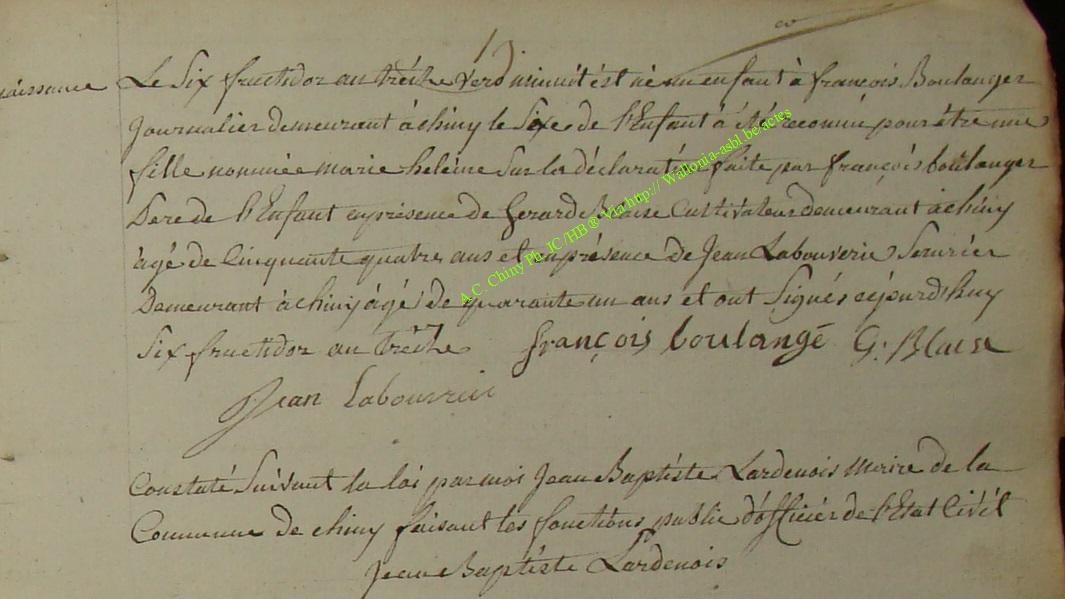 13
naissance Le Six fructidor an trèshe vers minuit ést né un enfant à françois Boulanger
Journalier demeurant à chiny le Sixe de l'Enfant à été reconnu pour être une
fille nommée marie heleine Sur la déclaration faite par françois boulanger
Pere de l'Enfant en présence de Gerard Blaise Cultivateur demeurant à chiny
âgé de Cinquante quatre ans et en présence de Jean Labouverie Serurier
Demeurant à chiny âgé de quarante un ans et ont Signés cejourd'huy
Six fructidor an trèshe françois boulangé G. Blaise
Jean Labouverie
Constaté Suivant la loi par moi Jean Baptiste Lardenois maire de la
Commune de chiny faisant les fonctions public d'officier de l'Etat Civil
Jean Baptiste Lardenois
A.C. Chiny Ph. JC /HB ® Via http:// Wallonia-asbl.be/actes